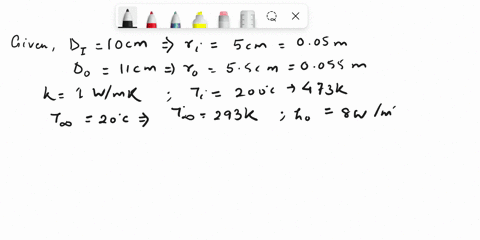 Given, D_I = 10cm ⇒ r_i = 5cm = 0.05m
D_o = 11cm ⇒ r_o = 5.5cm = 0.055m
k = 1 W/mK ; T_i = 200°C → 473K
T_∞ = 20°C ⇒ T_∞ = 293K ; h_o = 8W/m²